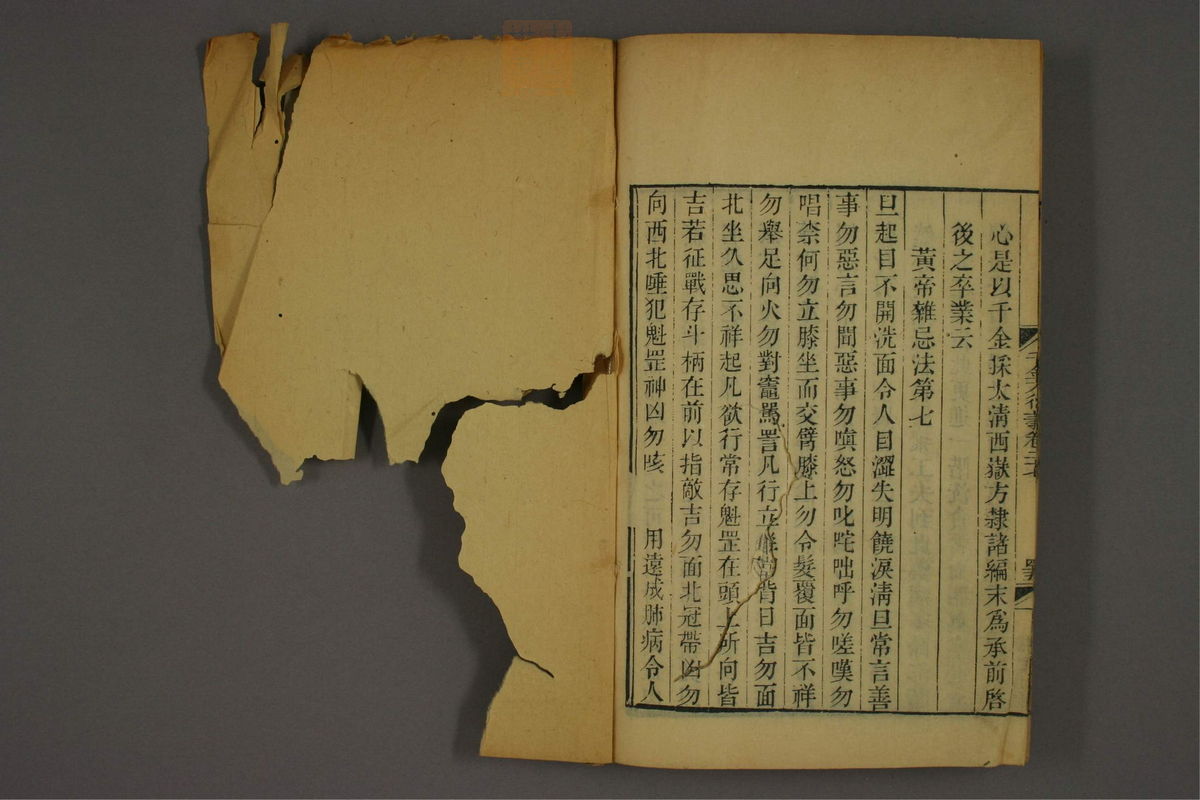 心是以千金採太清西嶽方隸諸編末爲承前啓
後之卒業云
黃帝雜忌法第七
旦起目不開洗面令人目澀失明饒淚清旦常言善
事勿惡言勿聞惡事勿嗔怒勿叱咤咄呼勿嗟嘆勿
唱柰何勿立膝坐而交臂膝上勿令髮覆面皆不祥
勿舉足向火勿對竈罵詈凡行立坐常背日吉勿面
北坐久思不祥起凡欲行常存魁罡在頭上所向皆
吉若征戰存斗柄在前以指敵吉勿面北冠帶凶勿
向西北唾犯魁罡神凶勿咳 用遠成肺病令人